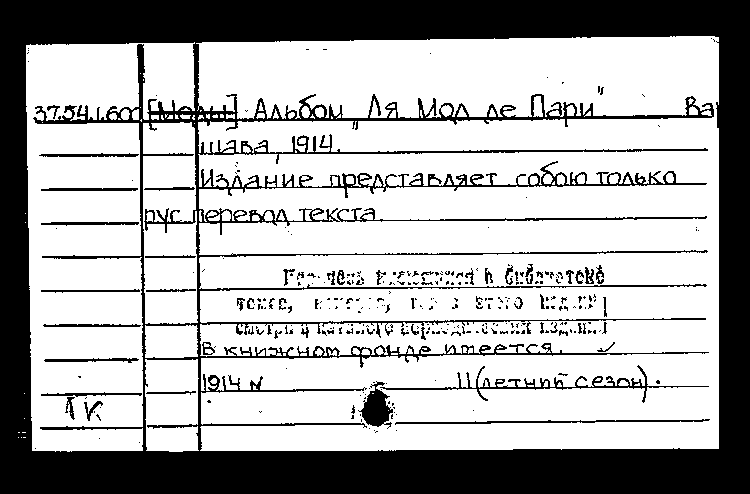 37.54.1.600 [Моды] Альбом „Ля Мод де Пари". Вар
шава, 1914.
Издание представляет собою только
рус перевод текста.
Перечень имеющихся в библиотеке
томов, этого издан
смотри в каталоге периодических издан
В книжном фонде имеется. ✓
1914 N 11 (летний сезон).
ГК